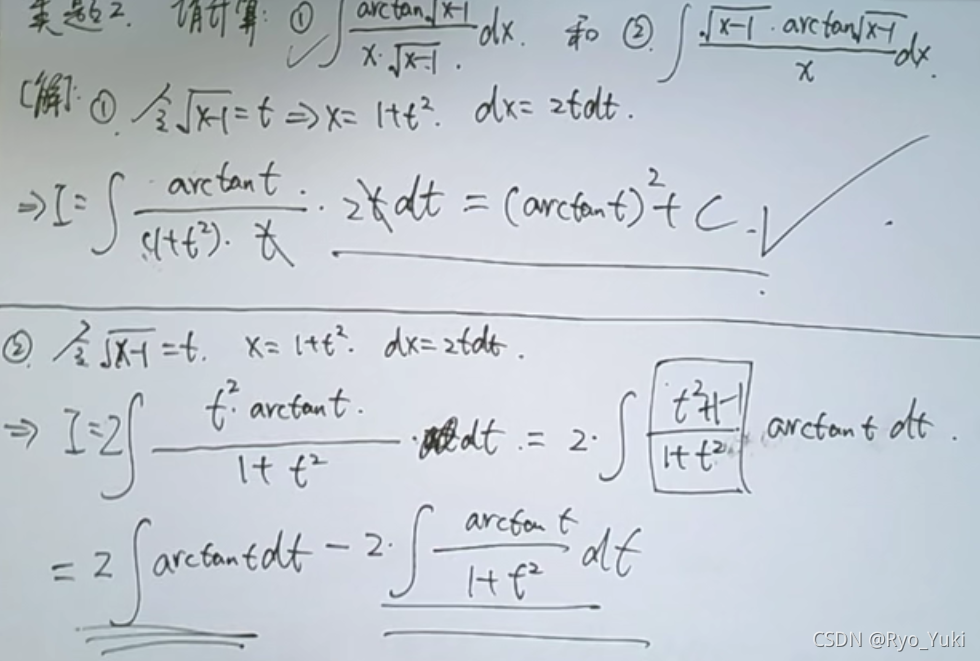 类题2. 请计算: ① ∫ arctan√(x-1) / (x·√(x-1)) dx. 和 ② ∫ √(x-1)·arctan√(x-1) / x dx.
[解]: ① 令√(x-1)=t ⇒ x= 1+t². dx= 2tdt.
⇒ I= ∫ arctant / ((1+t²)·t) · 2tdt = (arctant)²+C.
② 令√(x-1)=t. x=1+t². dx=2tdt.
⇒ I=2∫ t²·arctant. / (1+t²) · dt. = 2·∫ (t²+1-1)/(1+t²) arctant dt.
= 2∫arctantdt - 2·∫ arctant / (1+t²) dt
CSDN @Ryo_Yuki